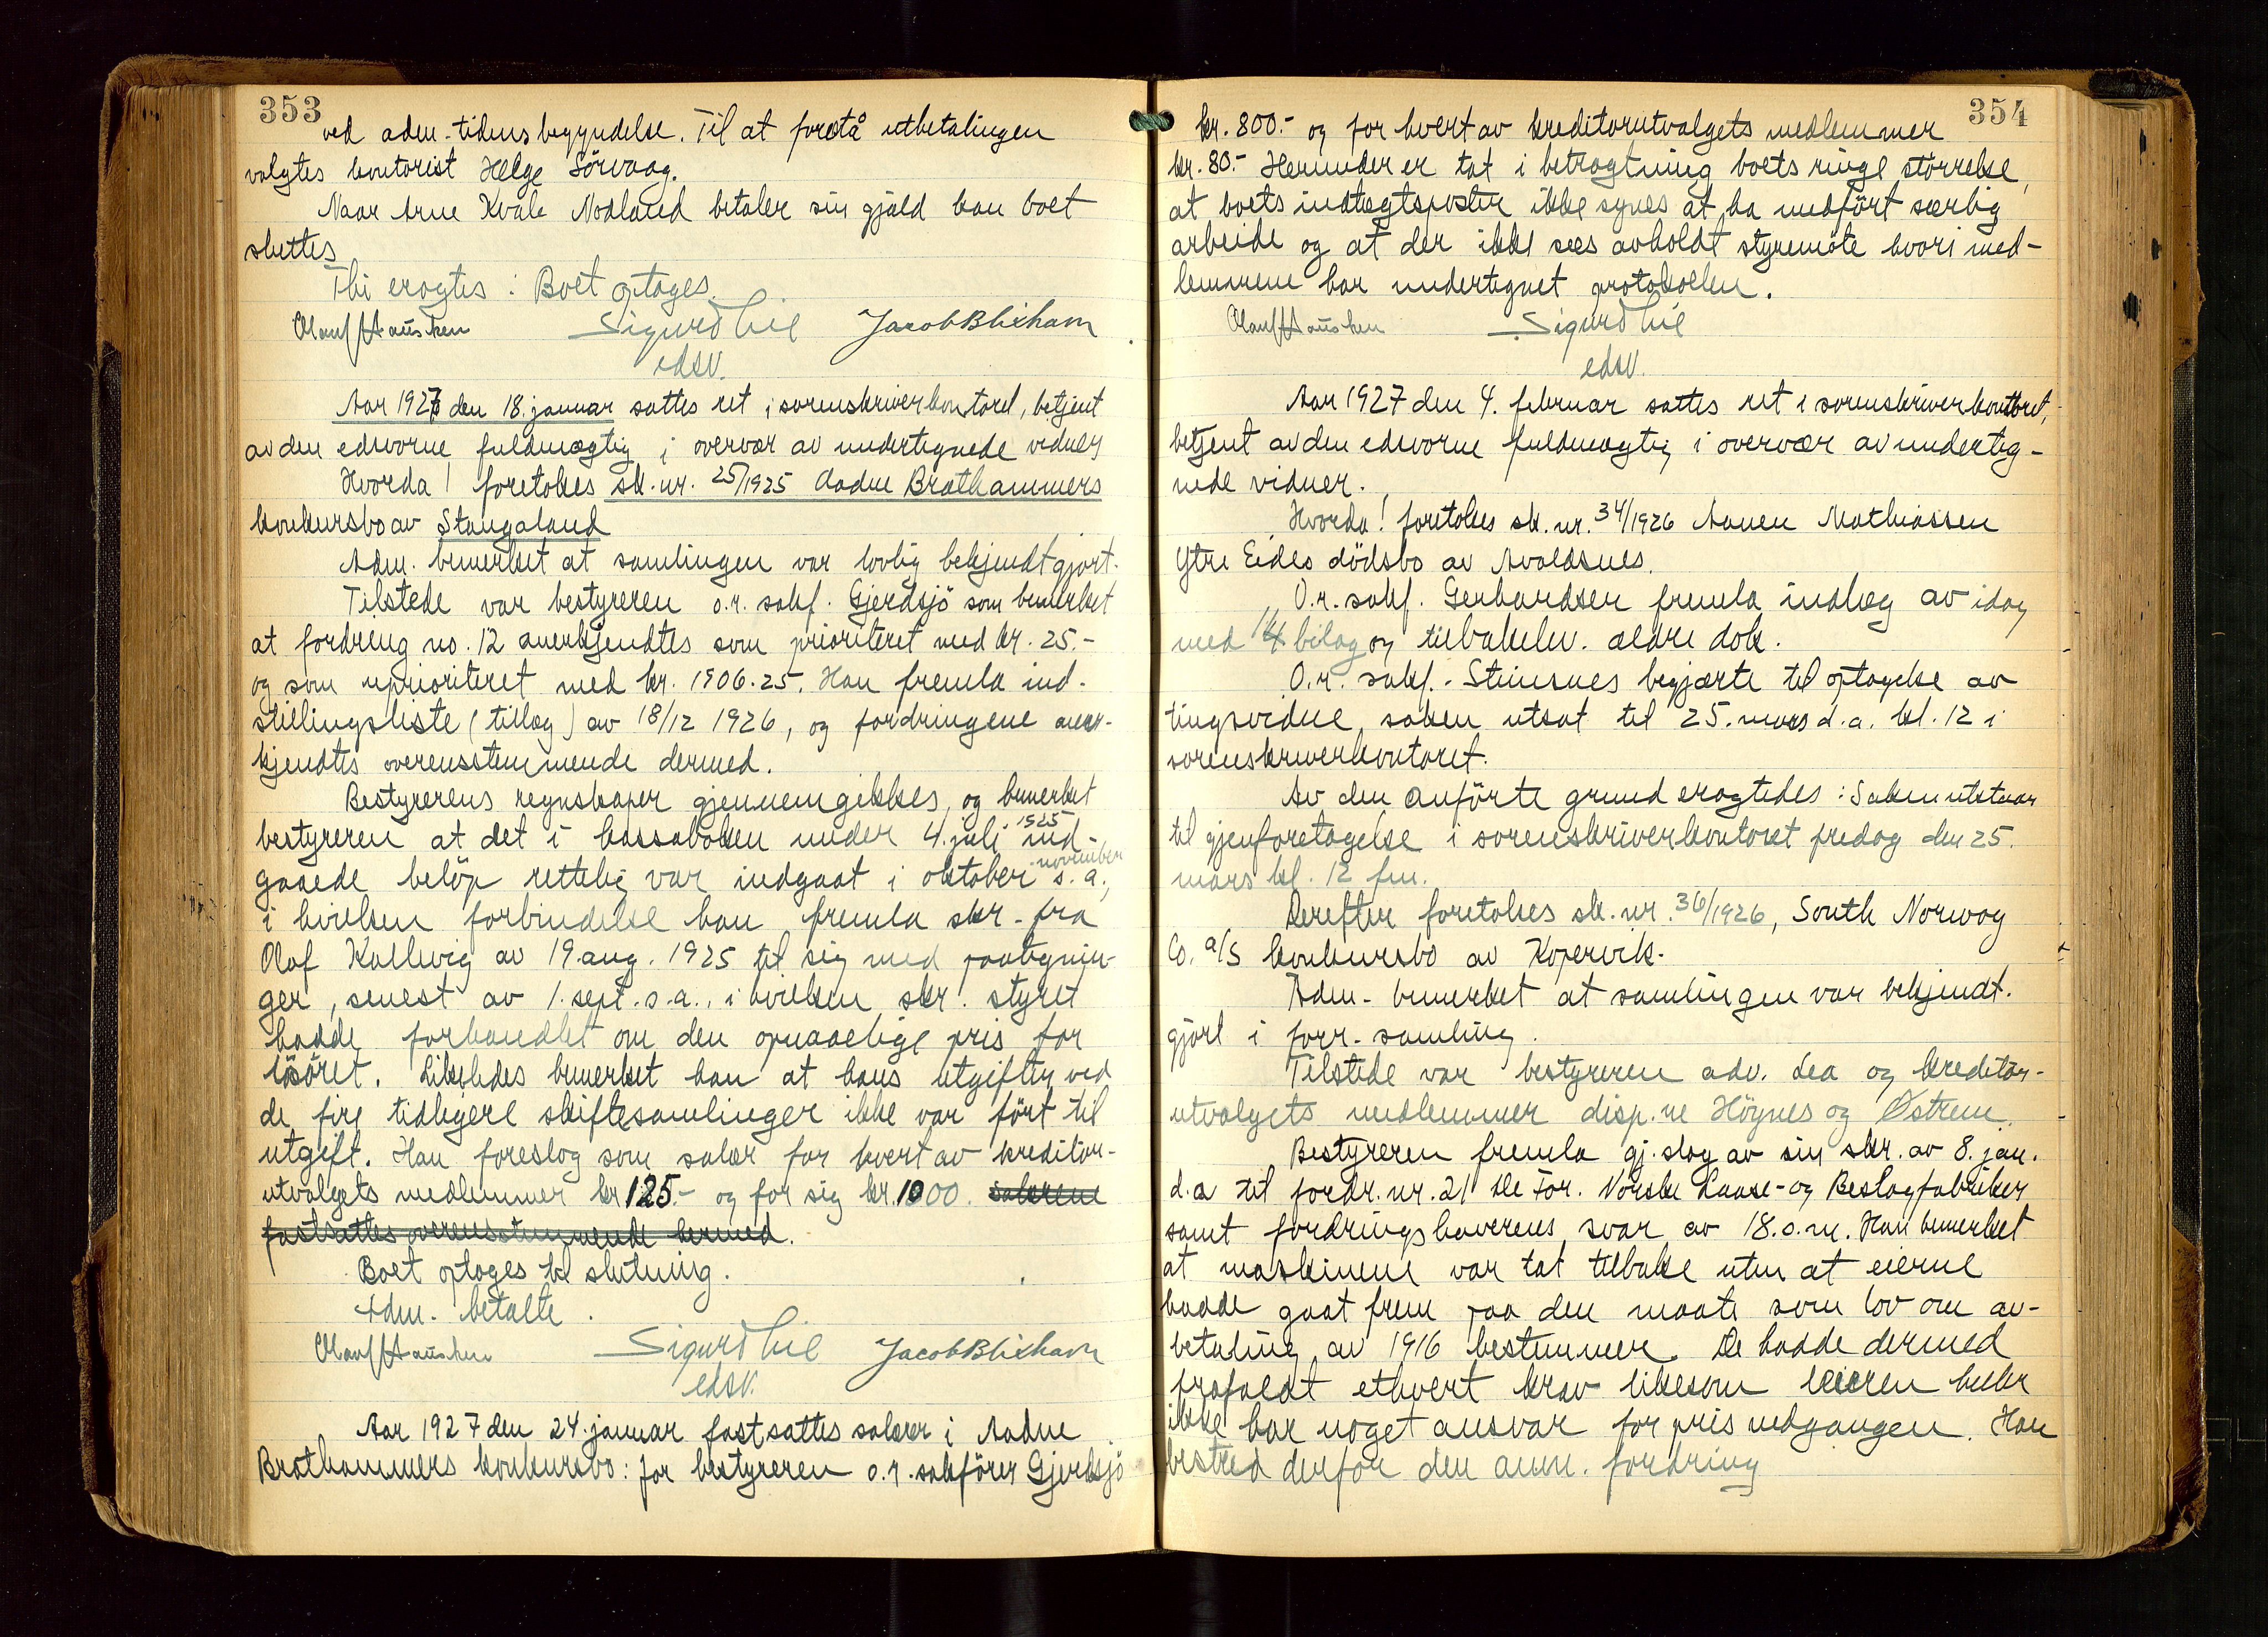 353
ved adm-tidens begyndelse. Til at foretå utbetalingen
valgtes kontorist Helge Sörvaag.
Naar Arne Kvale Nodland betaler sin gjæld kan boet
sluttes
Thi eragtes: Boet optages.
Olauf Hausken Sigurd Lie Jacob Blixhavn
edsv.
Aar 1927 den 18. januar sattes ret i sorenskriverkontoret, betjent
av den edsvorne fuldmægtig i overvær av undertegnede vidner
Hvorda! foretokes sk. nr. 25/1925 Aadne Brathammers
konkursbo av Stangaland
Adm. bemerket at samlingen var lovlig bekjendtgjort.
Tilstede var bestyreren o.r. sakf. Gjerdsjö som bemerket
at fordring no. 12 anerkjendtes som prioriteret med kr. 25.-
og som uprioriteret med kr. 1906.25. Han fremla ind-
stillingsliste (tillæg) av 18/12 1926, og fordringene aner-
kjendtes overensstemmende dermed.
Bestyrerens regnskaper gjennemgikkes, og bemerket
bestyreren at det i kassaboken under 4. juli 1925 ind-
gaaede belöp rettelig var indgaat i oktober november s.a.,
i hvilken forbindelse han fremla skr. fra
Olaf Kallevig av 19. aug. 1925 til sig med paategnin-
ger, senest av 1. sept. s.a., i hvilken skr. styret
hadde forhandlet om den opnaaelige pris for
lösöret. Likeledes bemerket han at hans utgifter ved
de fire tidligere skiftesamlinger ikke var fört til
utgift. Han foreslog som salær for hvert av kreditor-
utvalgets medlemmer kr 125.- og for sig kr. 1000. salærene
fastsattes overensstemmende hermed.
Boet optages til slutning.
Adm. betalte.
Olauf Hausken Sigurd Lie Jacob Blixhavn
edsv.
Aar 1927 den 24. januar fastsattes salær i Aadne
Brathammers konkursbo: for bestyreren o.r. sakförer Gjerdsjö
354
kr. 800.- og for hvert av kreditorutvalgets medlemmer
kr. 80.- Herunder er tat i betragtning boets ringe störrelse,
at boets indtægtsposter ikke synes at ha medfört særlig
arbeide og at der ikke sees avholdt styremöte hvori med-
lemmene har undertegnet protokollen.
Olauf Hausken Sigurd Lie
edsv.
Aar 1927 den 4. februar sattes ret i sorenskriverkontoret,
betjent av den edsvorne fuldmægtig i overvær av underteg-
nede vidner.
Hvorda! foretokes sk. nr. 34/1926 Aanen Mathiassen
Ytre Eides dödsbo av Avaldsnes.
O.r. sakf. Gerhardsen fremla indlæg av idag
med 14 bilag og tilbakelev. ældre dok.
O.r. sakf. Steinsnes begjærte til optagelse av
tingsvidne saken utsat til 25. mars d.a. kl. 12 i
sorenskriverkontoret.
Av den anförte grund eragtedes: Saken utstaar
til gjenforetagelse i sorenskriverkontoret fredag den 25.
mars kl. 12 fm.
Derefter foretokes sk. nr. 36/1926, South Norway
Co. a/s konkursbo av Kopervik.
Adm. bemerket at samlingen var bekjendt.
gjort i forr. samling.
Tilstede var bestyreren adv. Lea og kreditor-
utvalgets medlemmer disp.ne Högnes og Östrem.
Bestyreren fremla gj.slag av sin skr. av 8. jan.
d.a til fordr. nr. 21 De For. Norske Laase- og Beslagfabriker
samt fordringshaverens svar av 18. s.m. Han bemerket
at maskinene var tat tilbake uten at eierne
hadde gaat frem paa den maate som lov om av-
betaling av 1916 bestemmer. De hadde dermed
frafaldt ethvert krav likesom leieren heller
ikke har noget ansvar for prisnedgangen. Han
bestred derfor den anm. fordring